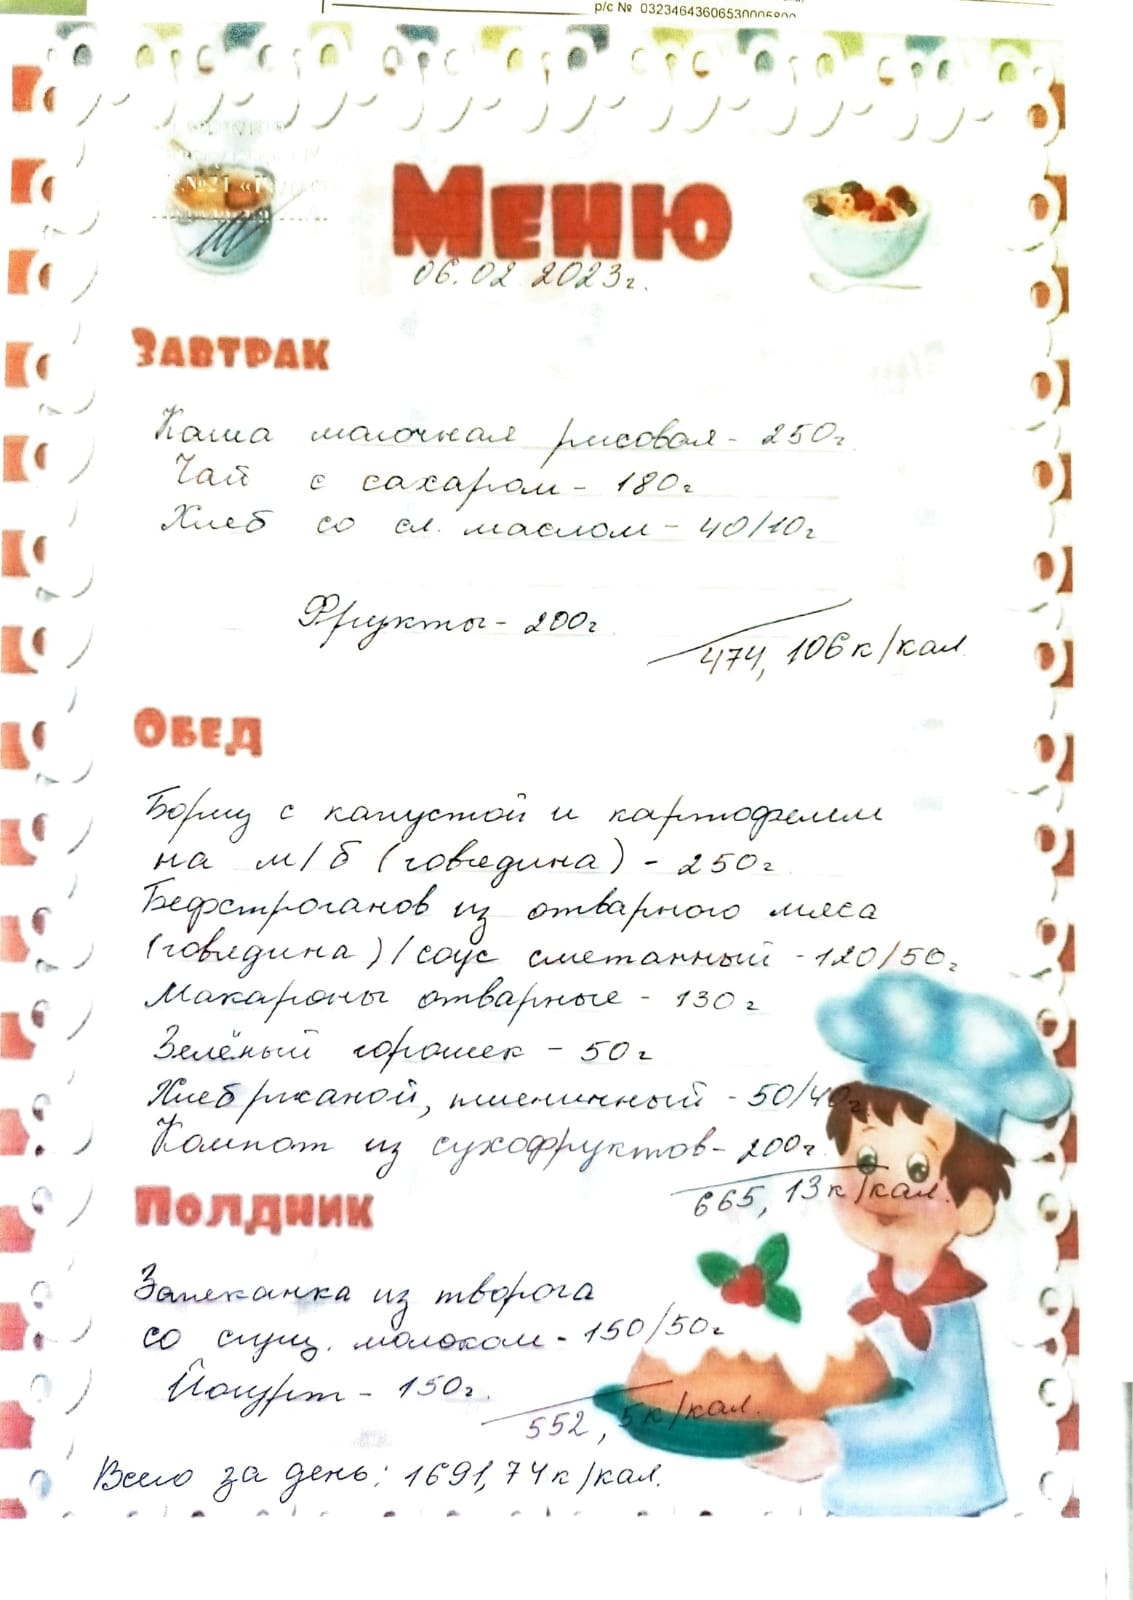 р/с № 03234643606530006800
№21
Меню
06.02 2023г.
Завтрак
Каша молочная рисовая - 250г
Чай с сахаром - 180г
Хлеб со сл. маслом - 40/10г
Фрукты - 200г
474, 106 к/кал.
Обед
Борщ с капустой и картофелем
на м/б (говядина) - 250г
Бефстроганов из отварного мяса
(говядина) / соус сметанный - 120/50г
Макароны отварные - 130г
Зелёный горошек - 50г
Хлеб ржаной, пшеничный - 50/40г
Компот из сухофруктов - 200г
665, 13 к/кал.
Полдник
Запеканка из творога
со сгущ. молоком - 150/50г
Йогурт - 150г.
552, 5 к/кал.
Всего за день: 1691,74 к/кал.